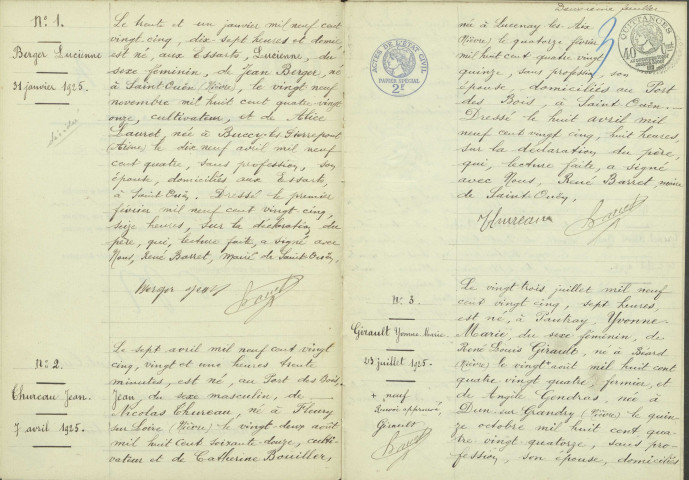 N° 1.
Berger Lucienne
31 janvier 1925.
Le trente et un janvier mil neuf cent
vingt cinq, dix sept heures et demie,
est né, aux Essarts, Lucienne, du
sexe féminin, de Jean Berger, né
à Saint Ouën (Nièvre), le vingt neuf
novembre mil huit cent quatre vingt
onze, cultivateur, et de Alice
Laurot, née à Bucy-les-Pierrepont
(Aisne) le dix neuf avril mil neuf
cent quatre, sans profession, son
épouse, domiciliés aux Essarts,
à Saint Ouën. Dressé le premier
février mil neuf cent vingt cinq,
seize heures, sur la déclaration du
père, qui, lecture faite, a signé avec
Nous, René Barret, maire de Saint Ouën,
Berger Jean
N° 2.
Thureau Jean.
7 avril 1925.
Le sept avril mil neuf cent vingt
cinq, vingt et une heures trente
minutes, est né, au Port des Bois,
Jean, du sexe masculin, de
Nicolas Thureau, né à Fleury
sur Loire (Nièvre) le vingt deux août
mil huit cent soixante douze, culti-
vateur et de Catherine Bouiller,
Deuxième feuillet
ACTES DE L'ÉTAT CIVIL
PAPIER SPÉCIAL
2F
QUITTANCES
née à Lucenay les Aix
(Nièvre) le quatorze février
mil huit cent quatre vingt
quinze, sans profession, son
épouse domiciliés au Port
des Bois, à Saint Ouën.
Dressé le huit avril mil
neuf cent vingt cinq, huit heures,
sur la déclaration du père,
qui, lecture faite, a signé
avec Nous, René Barret, maire
de Saint Ouën,
Thureau
N° 3.
Girault Yvonne Marie
23 juillet 1925.
+ neuf
Renvoi approuvé,
Girault
Le vingt trois juillet mil neuf
cent vingt cinq, sept heures,
est né, à Pautray Yvonne
Marie, du sexe féminin, de
René Louis Girault, né à Béard
(Nièvre) le vingt août mil huit cent
quatre vingt quatre, fermier, et
de Angèle Gondras, née à
Dun-sur-Grandry (Nièvre) le quin-
ze octobre mil huit cent qua-
tre vingt quatorze, sans pro-
fession, son épouse, domiciliés